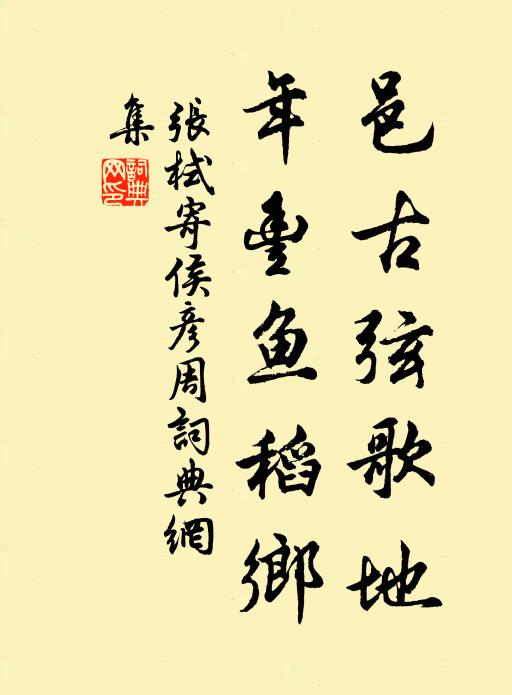 邑古弦歌地
年豊魚稻鄉
張栻寄侯彦周詞典網
集
詞典網印